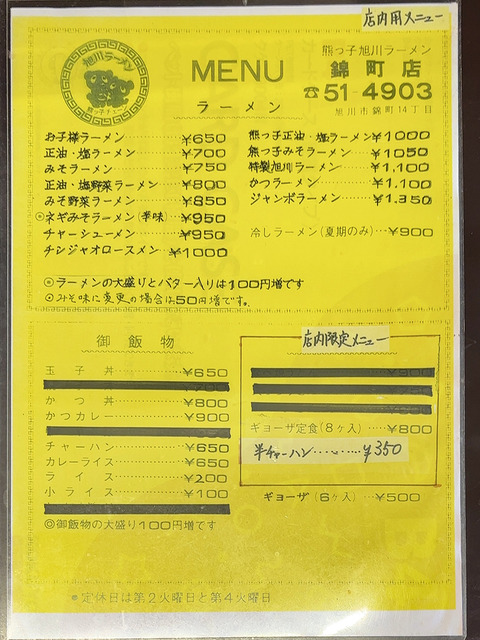 店内用メニュー
旭川ラーメン
熊っ子チェーン
MENU
熊っ子旭川ラーメン
錦町店
☎51-4903
旭川市錦町14丁目
ラーメン
お子様ラーメン ¥650
正油・塩ラーメン ¥700
みそラーメン ¥750
正油・塩野菜ラーメン ¥800
みそ野菜ラーメン ¥850
◎ネギみそラーメン(辛味) ¥950
チャーシューメン ¥950
チンジャオロースメン ¥1000
熊っ子正油・塩ラーメン¥1000
熊っ子みそラーメン ¥1050
特製旭川ラーメン ¥1,100
かつラーメン ¥1.100
ジャンボラーメン ¥1.350
冷しラーメン(夏期のみ) ¥900
◎ラーメンの大盛りとバター入りは100円増です
◎みそ味に変更の場合は50円増です。
御飯物
玉子丼 ¥650
かつ丼 ¥800
かつカレー ¥900
チャーハン ¥650
カレーライス ¥650
ライス ¥200
小ライス ¥100
◎御飯物の大盛り100円増です
店内限定メニュー
ギョーザ定食(8ヶ入) ¥800
半チャーハン ¥350
ギョーザ(6ヶ入) ¥500
●定休日は第2火曜日と第4火曜日